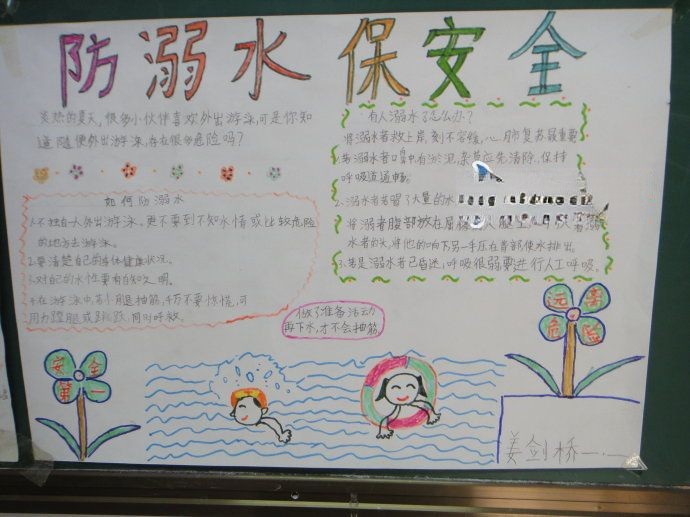 防溺水 保安全
炎热的夏天,很多小伙伴喜欢外出游泳,可是你知
道随便外出游泳,存在很多危险吗?
如何防溺水
1.不独自一人外出游泳,更不要到不知水情或比较危险
的地方去游泳。
2.要清楚自己的身体健康状况。
3.对自己的水性要有自知之明。
4.在游泳中,若小腿抽筋,千万不要惊慌,可
用力蹬腿或跳跃,同时呼救。
有人溺水了怎么办?
将溺水者救上岸,刻不容缓,心肺复苏最重要
1.若溺水者口鼻中有淤泥,杂草应先清除,保持
呼吸道通畅。
2.溺水者若喝了大量的水
将溺者腹部放在屈膝的大腿上
水者的头,将他的嘴向下另一手压在背部使水排出。
3.若是溺水者已昏迷,呼吸很弱要进行人工呼吸。
做了准备活动
再下水,才不会抽筋
安全
第一
远离
危险
姜剑桥